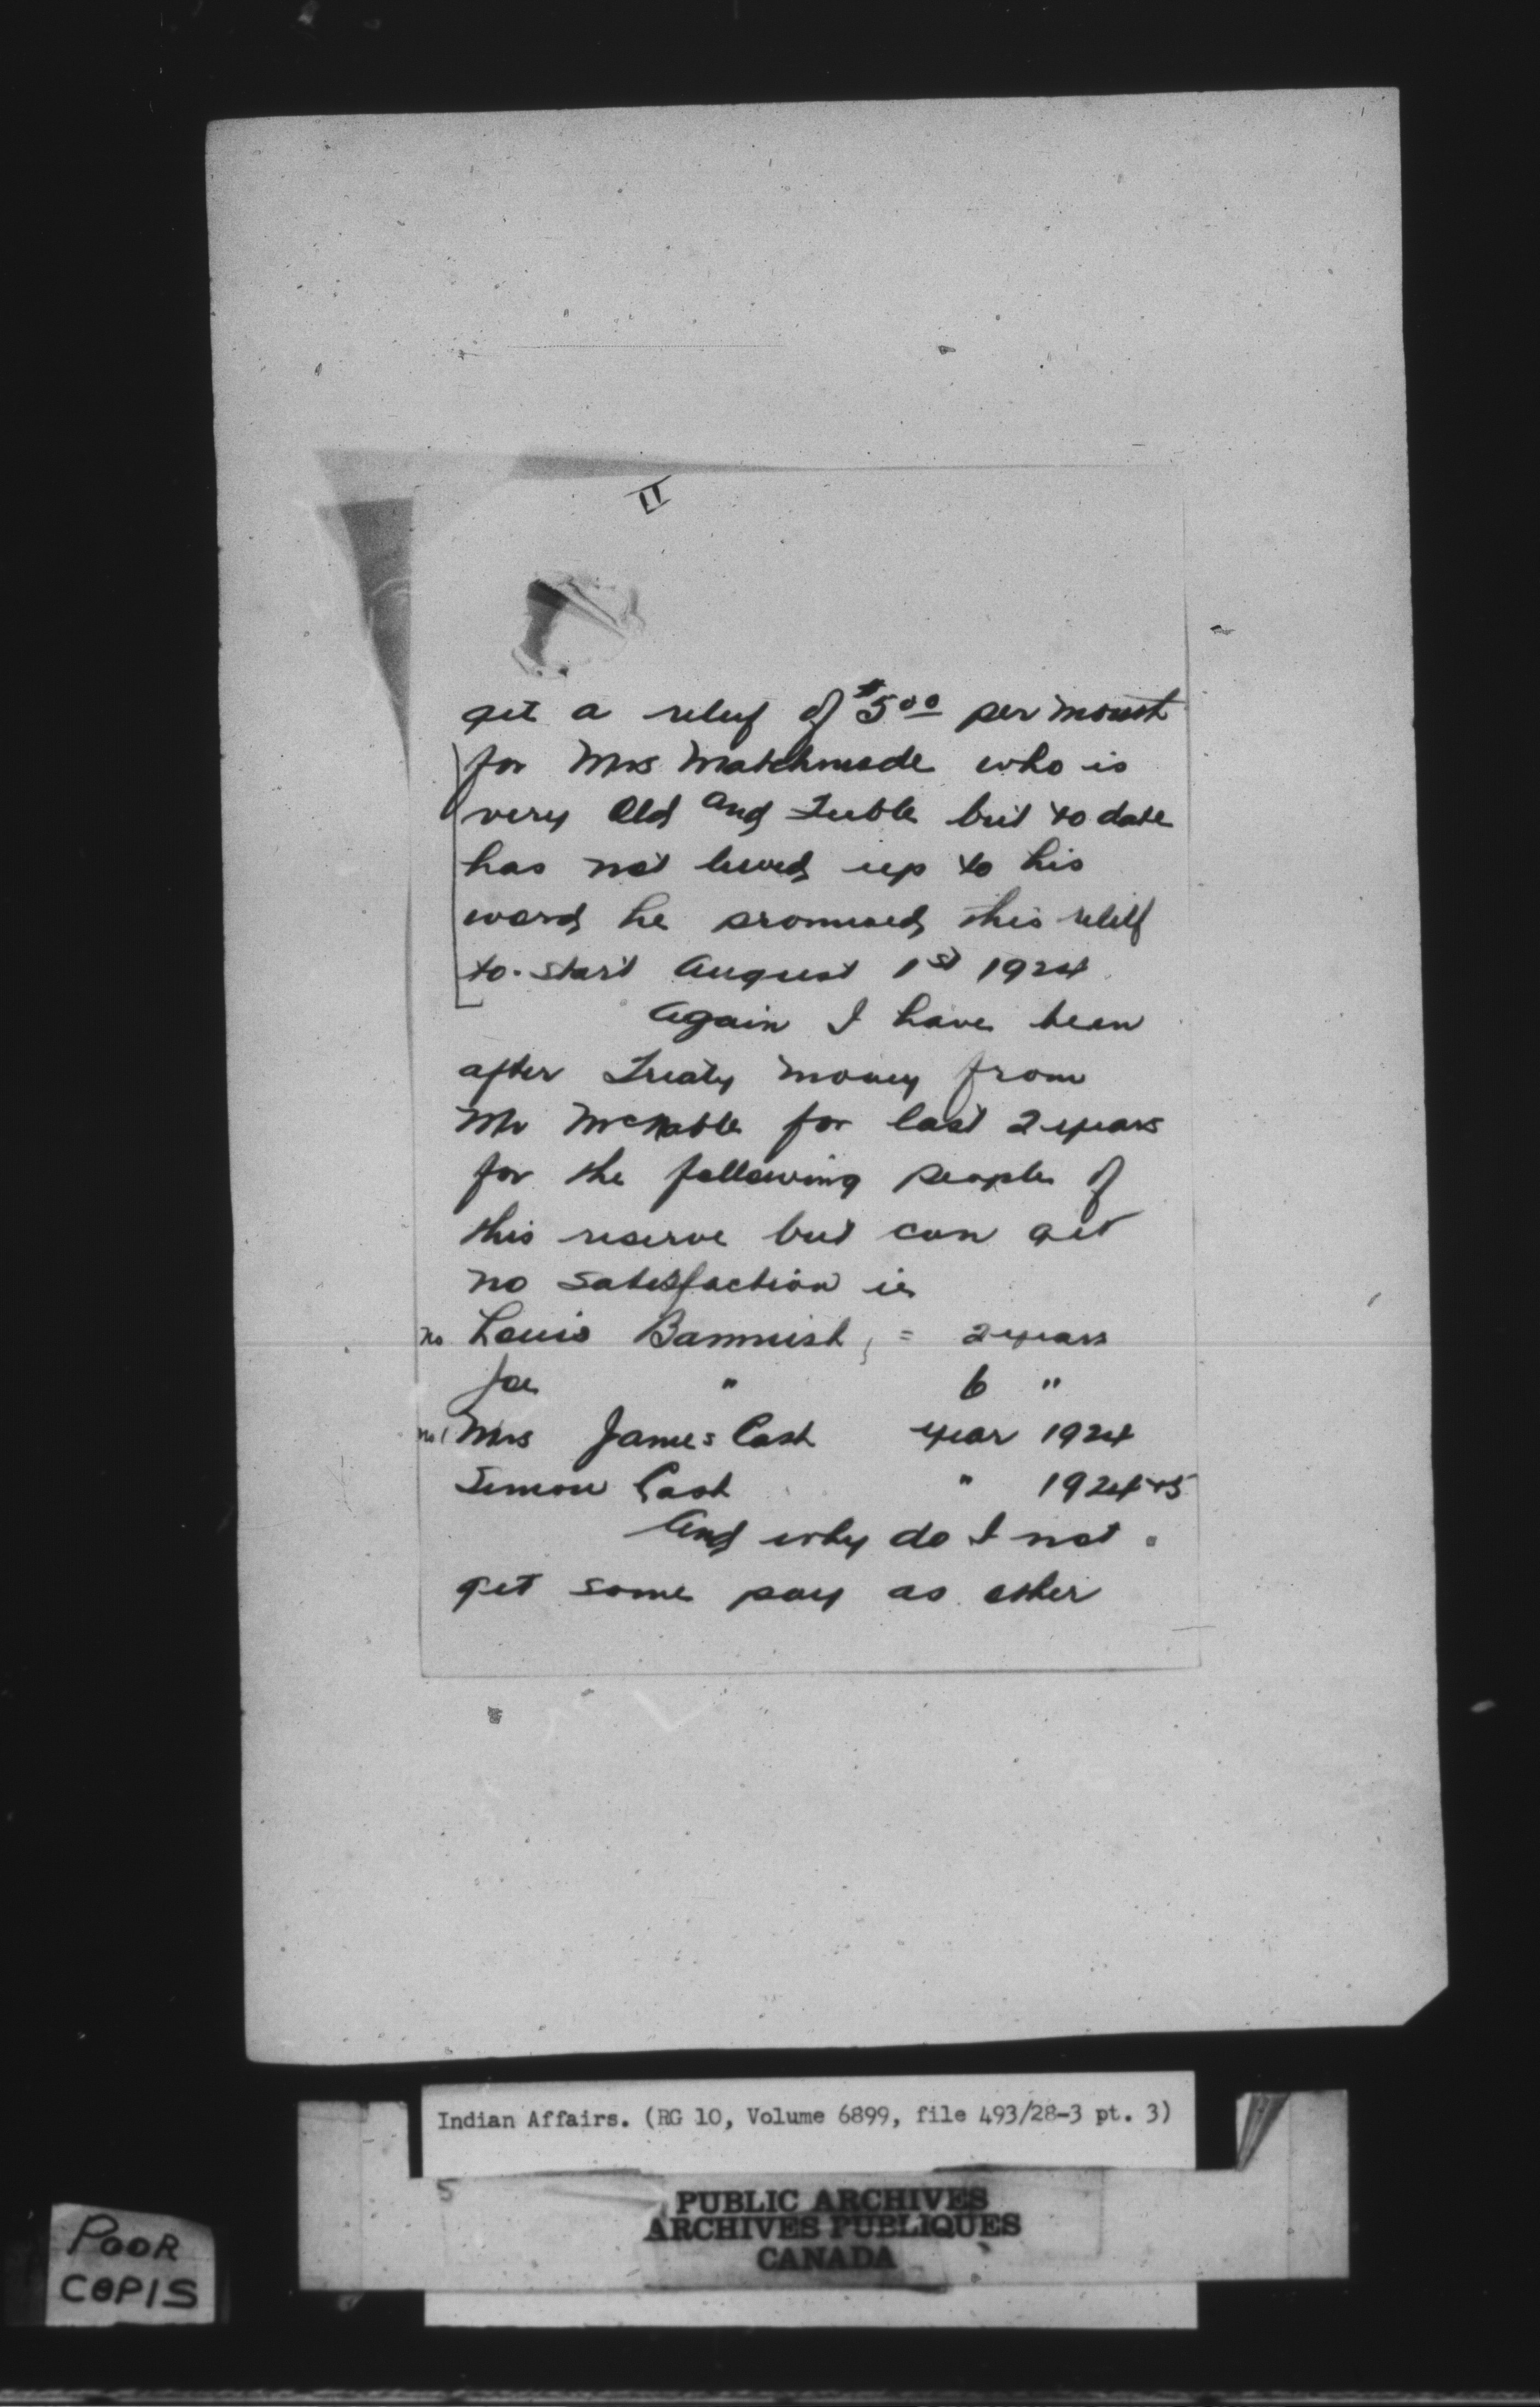 II
get a relief of $5.00 per mounth
for Mrs Matchmede who is
very Old and Feeble but to date
has not lived up to his
word he promised this relief
to start August 1st 1924
Again I have been
after Treaty money from
Mr McNabb for last 2 years
for the following people of
this reserve but can get
no satisfaction ie
no Louis Bannish, = 2 years
Joe " 6 "
no Mrs James Cash year 1924
Simon Cash " 1924+5
And why do I not
get some pay as other
Indian Affairs. (RG 10, Volume 6899, file 493/28-3 pt. 3)
5
PUBLIC ARCHIVES
ARCHIVES PUBLIQUES
CANADA
POOR
COPIS